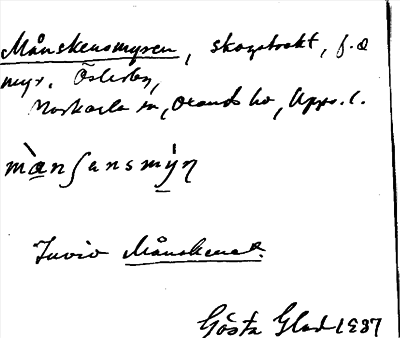 Månskensmyren, skogstrakt, f.d
myr, Österby,
Morkarla sn, Olands hd, Upps. l.
mànʃənsmỳn
Invid Månskenet.
Gösta Glad 1937